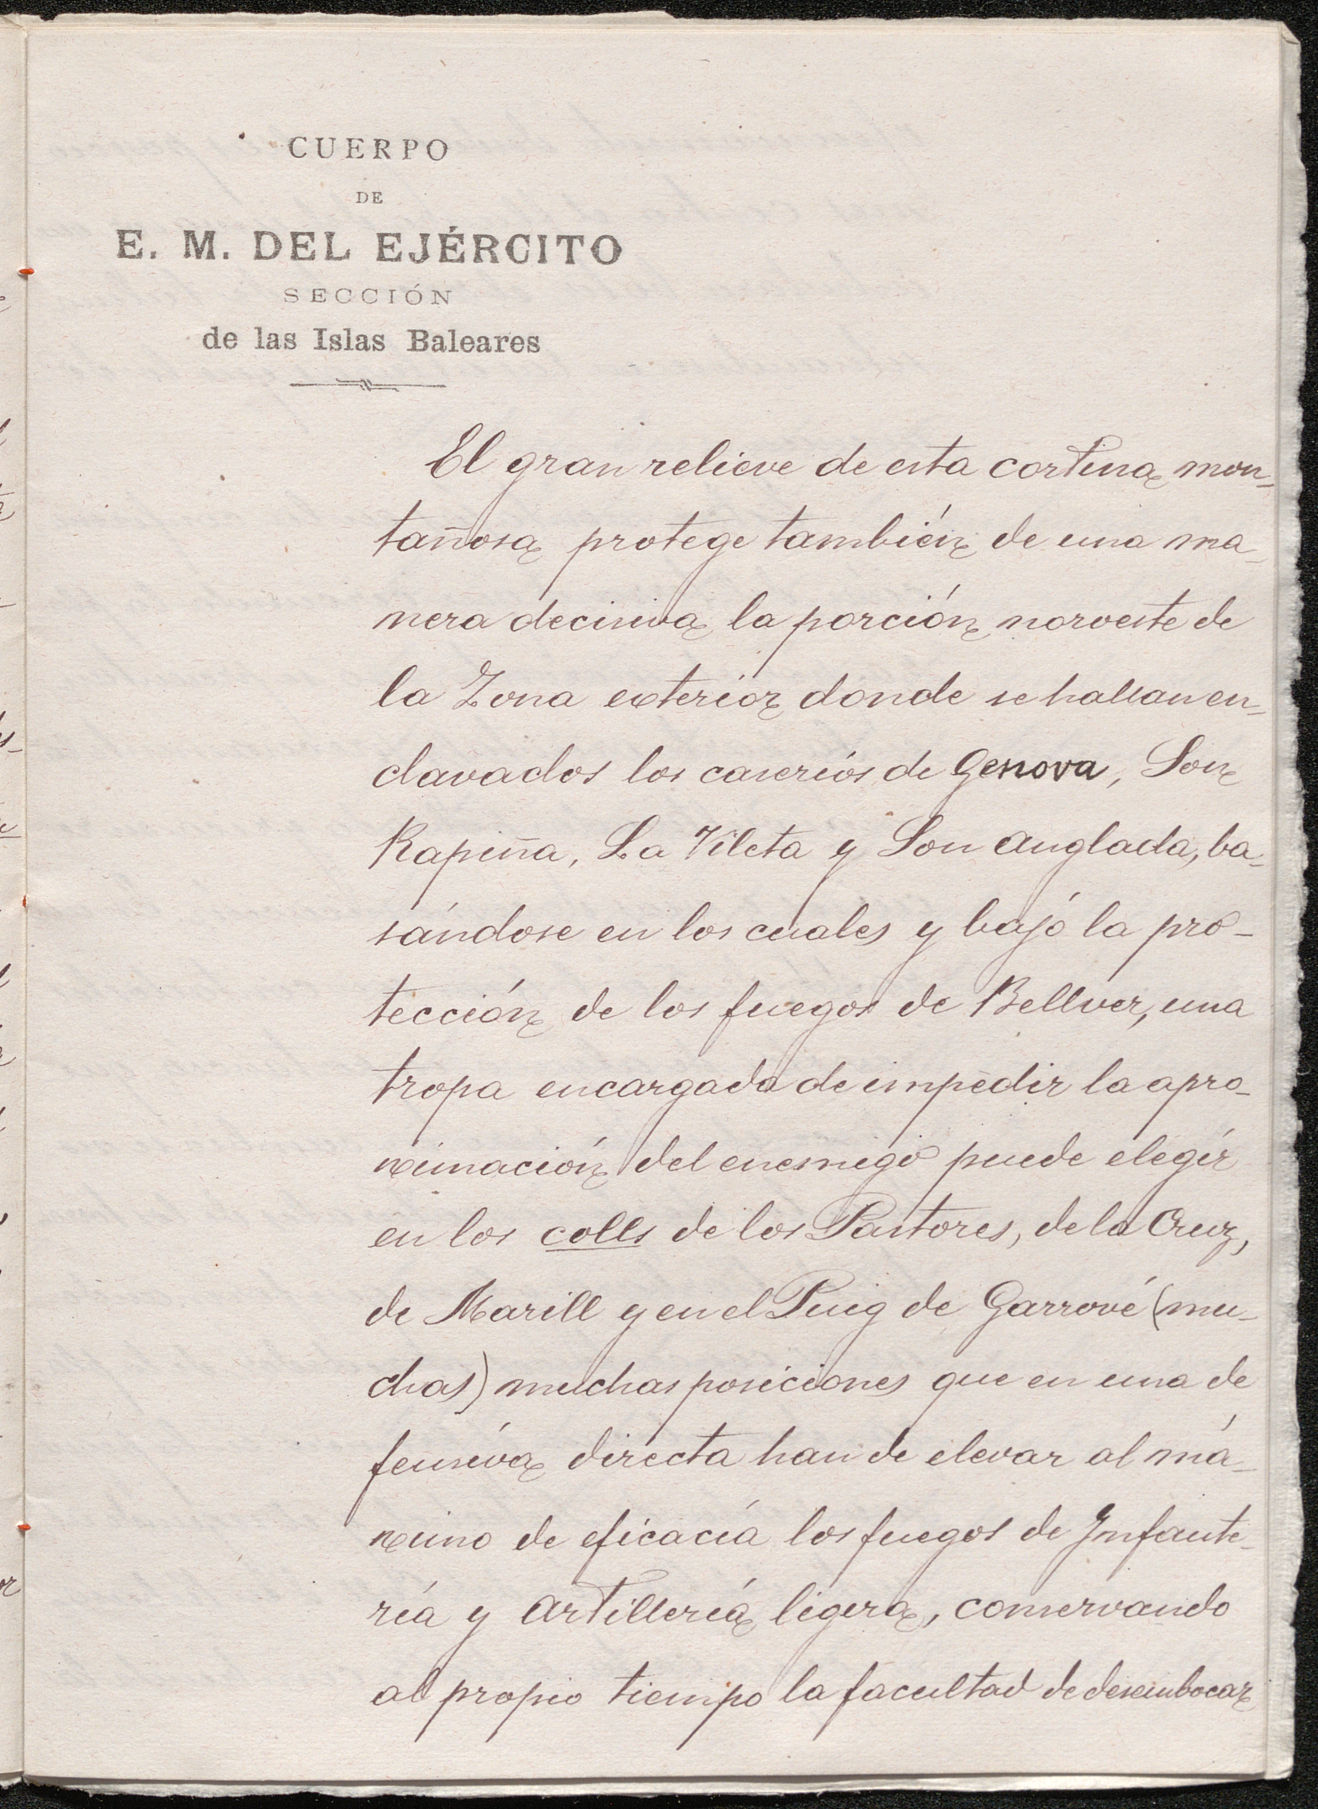 CUERPO
DE
E. M. DEL EJÉRCITO
SECCIÓN
de las Islas Baleares
El gran relieve de esta cortina mon-
tañosa protege también de una ma-
nera decisiva la porción noroeste de
la Zona exterior donde se hallan en-
clavados los caseríos de Genova, Son
Rapiña, La Vileta y Son Anglada, ba-
sándose en los cuales y bajó la pro-
tección de los fuegos de Bellver, una
tropa encargada de impedir la apro-
ximación del enemigo puede elegir
en los colls de los Pastores, de la Cruz,
de Marill y en el Puig de Garrové (mu-
chas) muchas posiciones que en una de
fensiva directa han de elevar al má-
ximo de eficacia los fuegos de Infante-
ría y Artillería ligera, conservando
al propio tiempo la facultad de desembocar